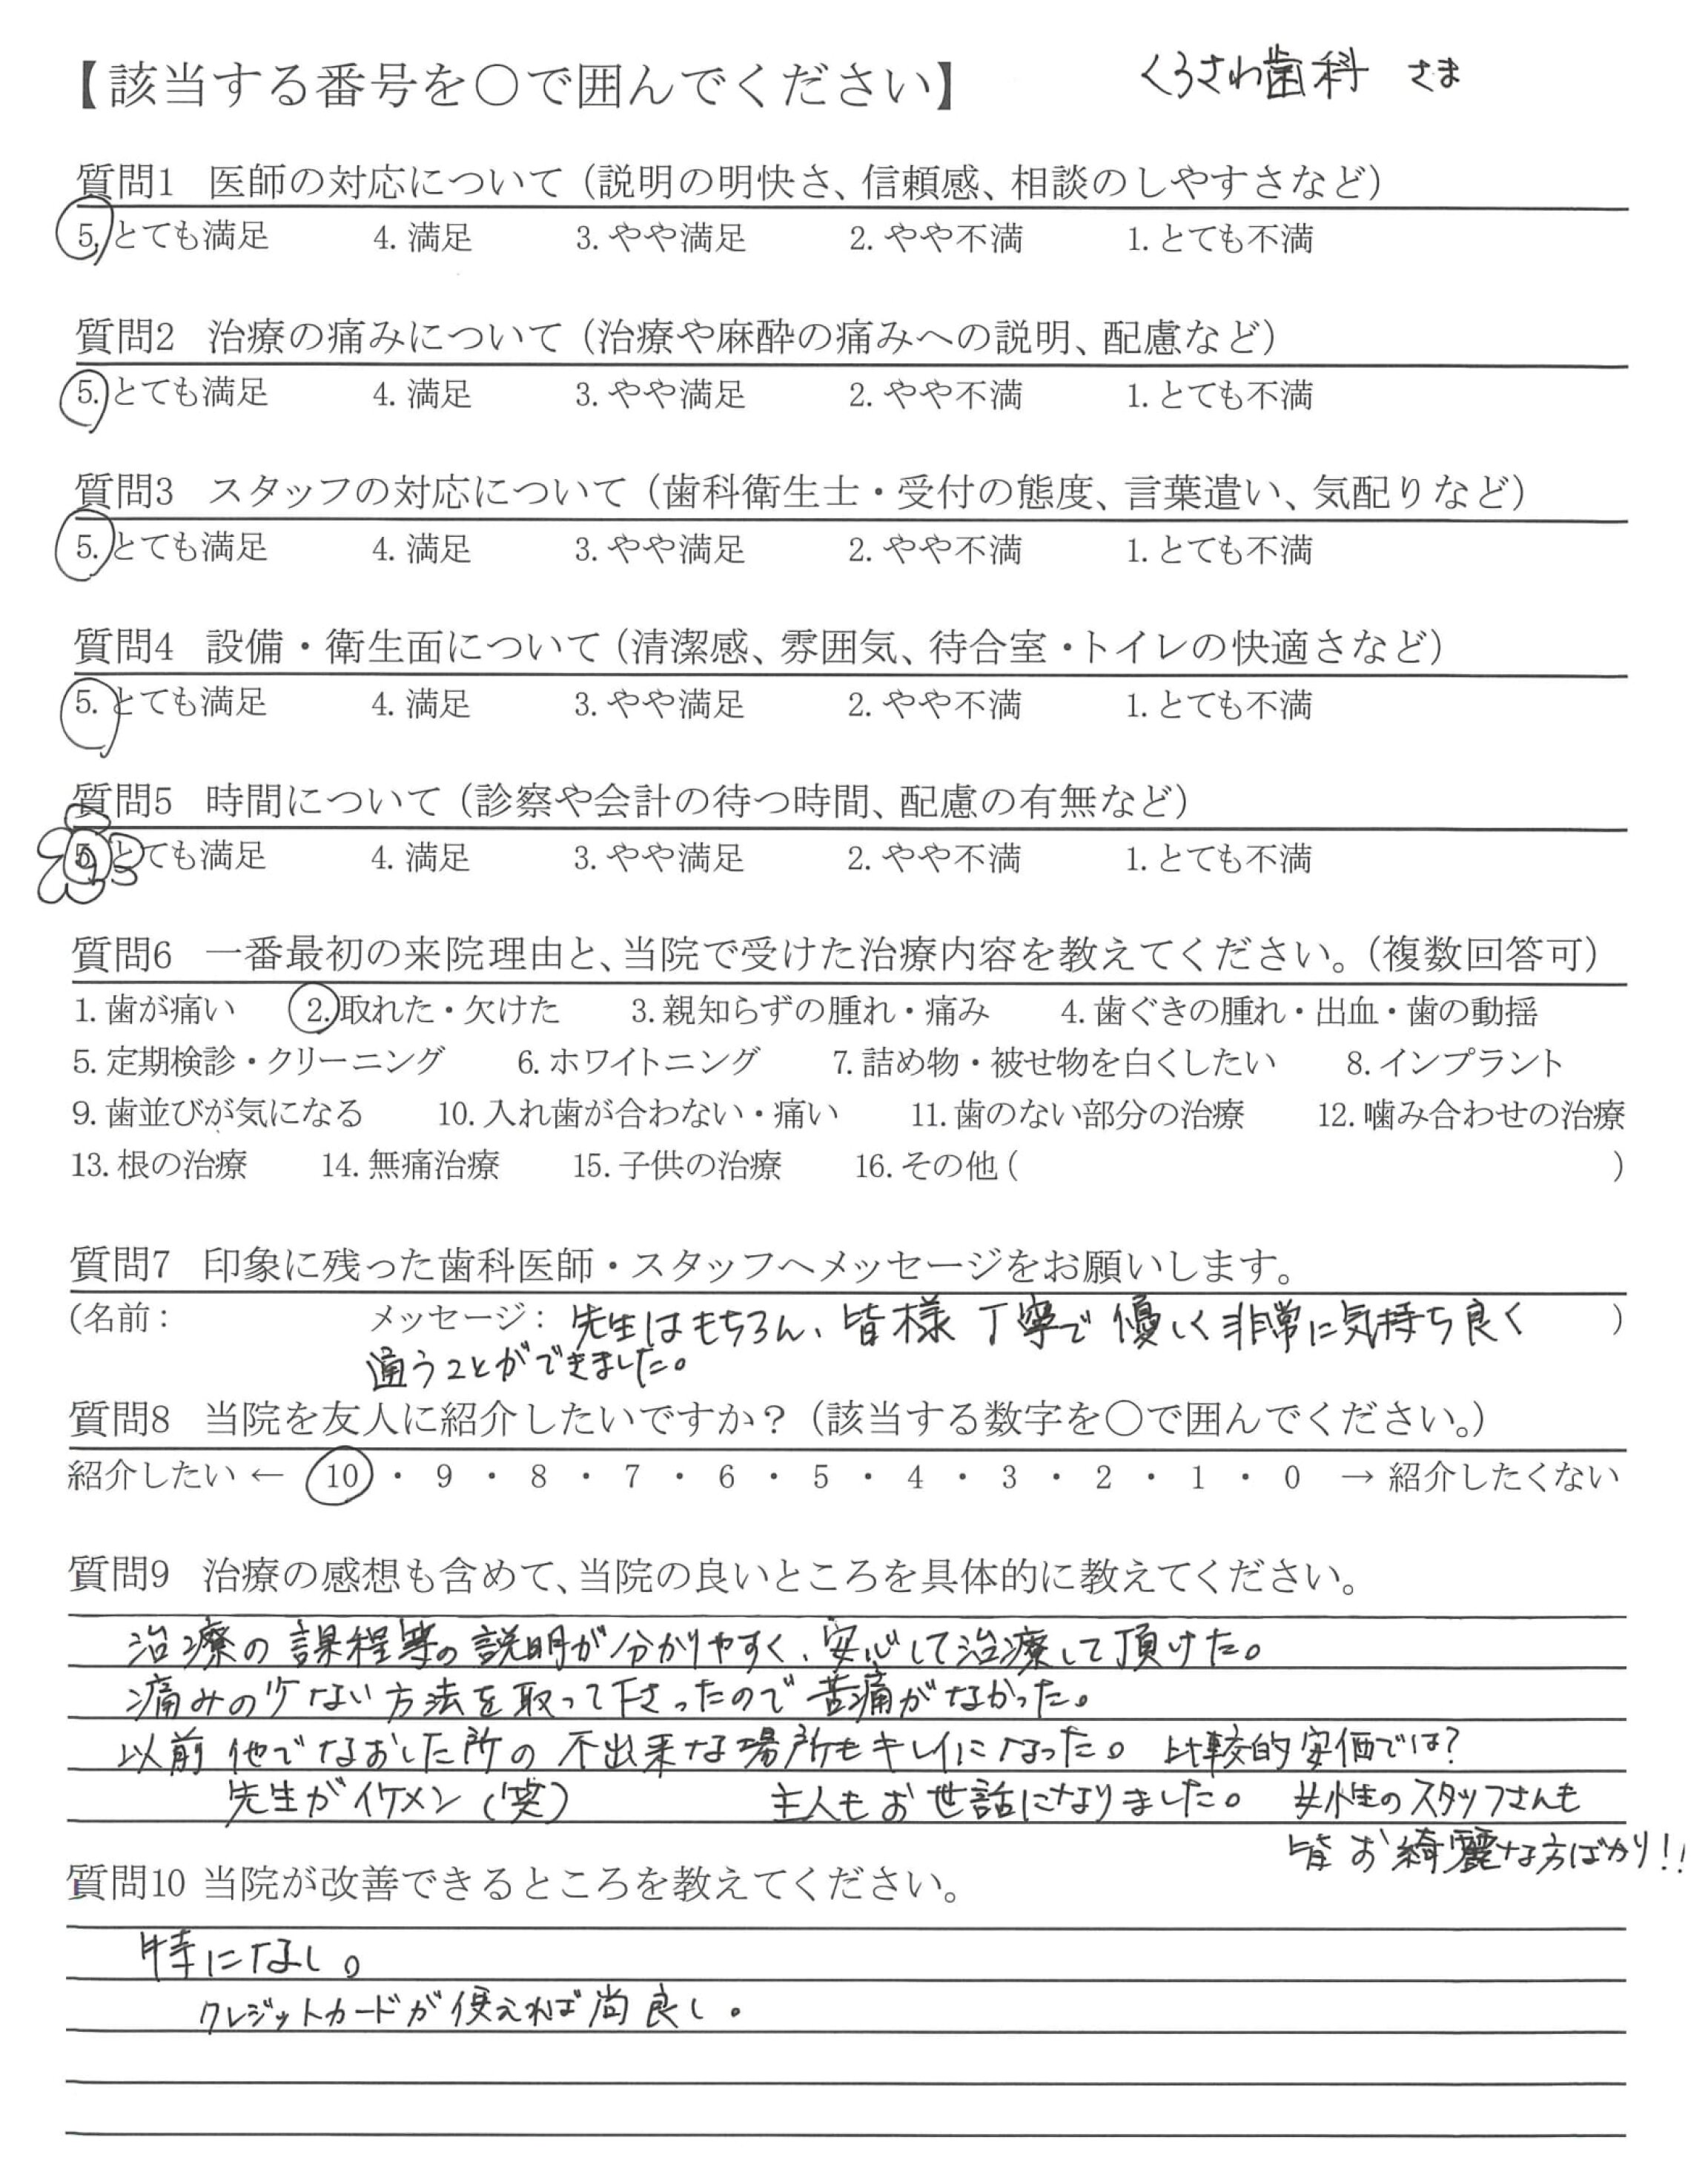 【該当する番号を○で囲んでください】 くろさわ歯科 さま
質問1 医師の対応について（説明の明快さ、信頼感、相談のしやすさなど）
5. とても満足 4. 満足 3. やや満足 2. やや不満 1. とても不満
質問2 治療の痛みについて（治療や麻酔の痛みへの説明、配慮など）
5. とても満足 4. 満足 3. やや満足 2. やや不満 1. とても不満
質問3 スタッフの対応について（歯科衛生士・受付の態度、言葉遣い、気配りなど）
5. とても満足 4. 満足 3. やや満足 2. やや不満 1. とても不満
質問4 設備・衛生面について（清潔感、雰囲気、待合室・トイレの快適さなど）
5. とても満足 4. 満足 3. やや満足 2. やや不満 1. とても不満
質問5 時間について（診察や会計の待つ時間、配慮の有無など）
5. とても満足 4. 満足 3. やや満足 2. やや不満 1. とても不満
質問6 一番最初の来院理由と、当院で受けた治療内容を教えてください。（複数回答可）
1. 歯が痛い 2. 取れた・欠けた 3. 親知らずの腫れ・痛み 4. 歯ぐきの腫れ・出血・歯の動揺
5. 定期検診・クリーニング 6. ホワイトニング 7. 詰め物・被せ物を白くしたい 8. インプラント
9. 歯並びが気になる 10. 入れ歯が合わない・痛い 11. 歯のない部分の治療 12. 噛み合わせの治療
13. 根の治療 14. 無痛治療 15. 子供の治療 16. その他（ ）
質問7 印象に残った歯科医師・スタッフへメッセージをお願いします。
（名前： メッセージ： 先生はもちろん、皆様 丁寧で 優しく非常に気持ち良く ）
通うことができました。
質問8 当院を友人に紹介したいですか？（該当する数字を○で囲んでください。）
紹介したい ← 10 ・ 9 ・ 8 ・ 7 ・ 6 ・ 5 ・ 4 ・ 3 ・ 2 ・ 1 ・ 0 → 紹介したくない
質問9 治療の感想も含めて、当院の良いところを具体的に教えてください。
治療の課程等の説明が分かりやすく、安心して治療して頂けた。
痛みの少ない方法を取って下さったので苦痛がなかった。
以前他でなおした所の不出来な場所もキレイになった。 比較的安価では?
先生がイケメン（笑） 主人もお世話になりました。 女性のスタッフさんも
皆お綺麗な方ばかり!!
質問10 当院が改善できるところを教えてください。
特になし。
クレジットカードが使えれば尚良し。